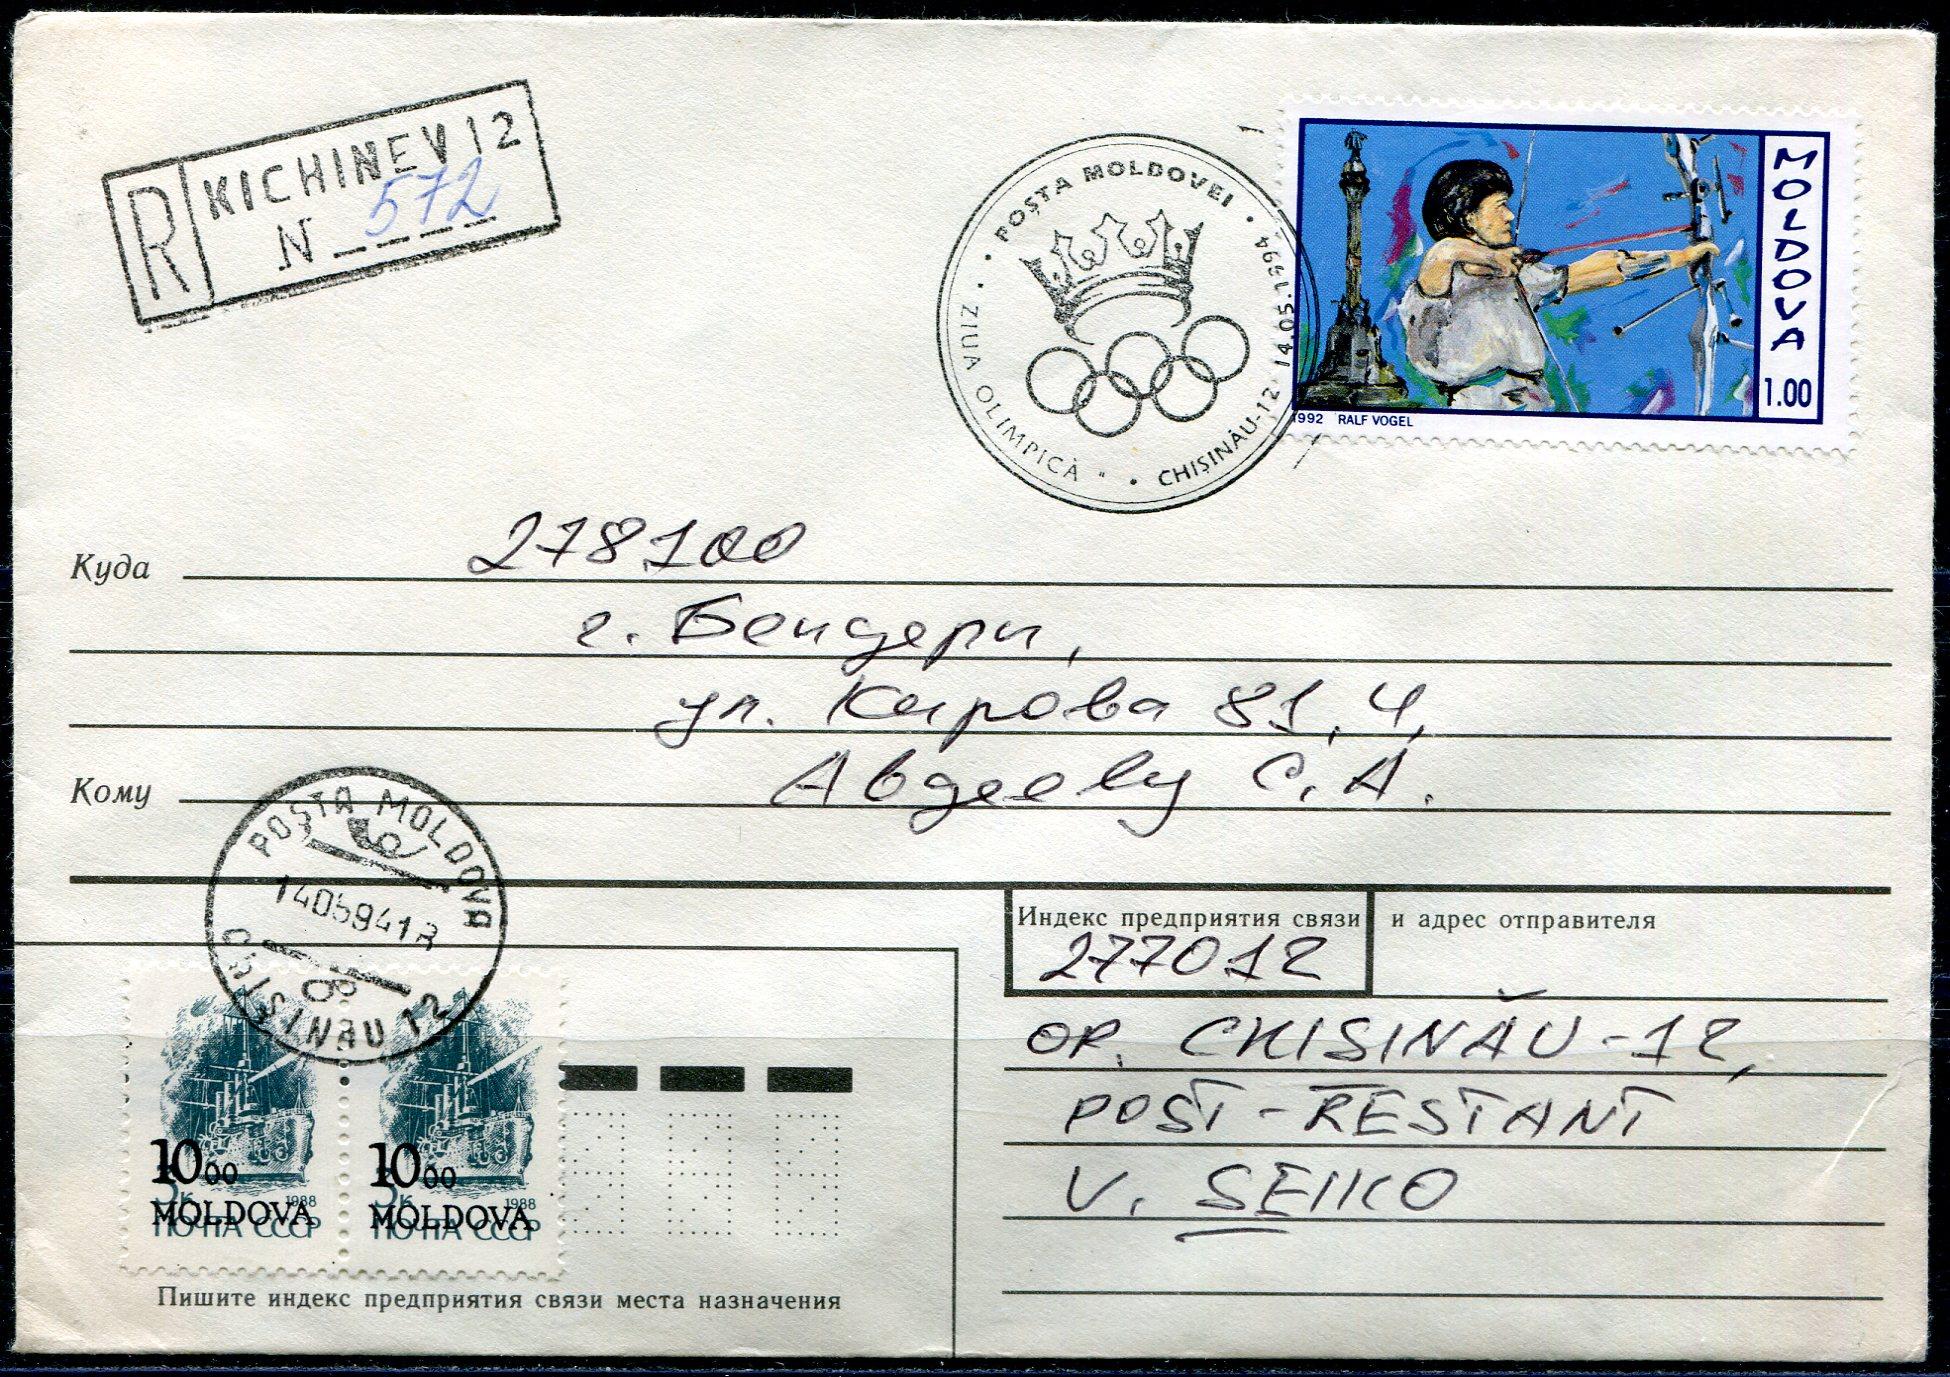 R KICHINEV 12
N 572
· POȘTA MOLDOVEI · 14.05.1994
ZIUA OLIMPICĂ " · CHIȘINĂU-12
MOLDOVA
1.00
1992 RALF VOGEL
Куда 278100
г. Бендеры,
ул. Кирова 81, 4,
Кому Авдееву С. А.
POȘTA MOLDOVA
14059418
CHIȘINĂU 12
Индекс предприятия связи и адрес отправителя
277012
OP. CHISINĂU-12,
POST-RESTANT
V. SEIKO
10 00 10 00
3к 1988 3к 1988
MOLDOVA MOLDOVA
ПОЧТА СССР ПОЧТА СССР
Пишите индекс предприятия связи места назначения